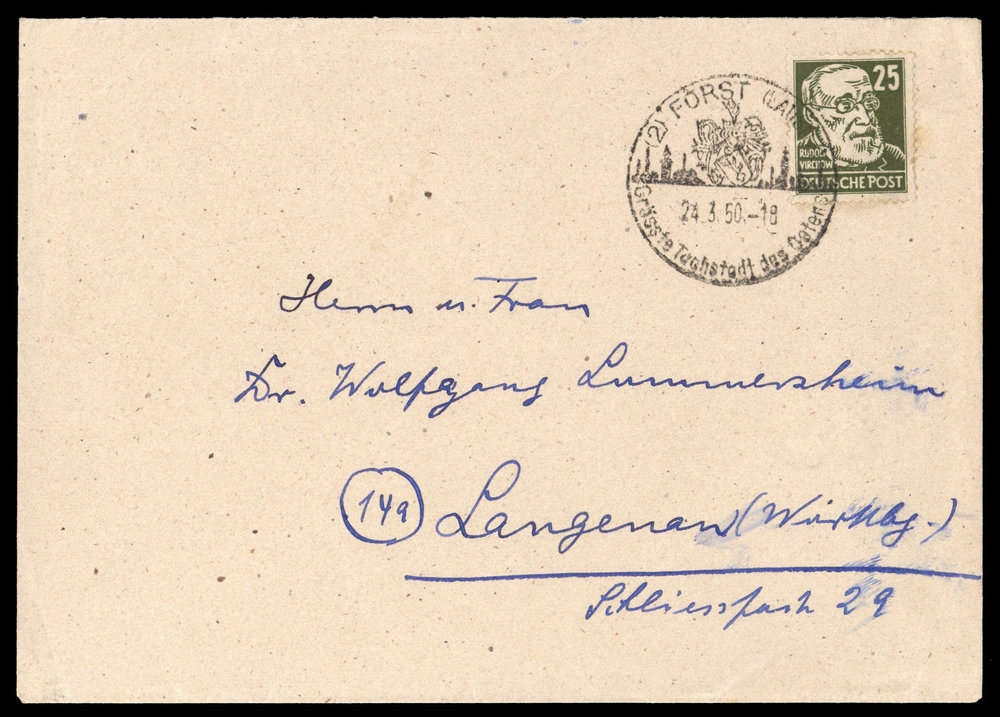 25
RUDOLF
VIRCHOW
DEUTSCHE POST
(2) FORST (LAU
24.3.50.-18
Grösste Tuchstadt des Ostens
Herrn u. Frau
Dr. Wolfgang Lummersheim
14a Langenau (Württbg.)
Schliessfach 29